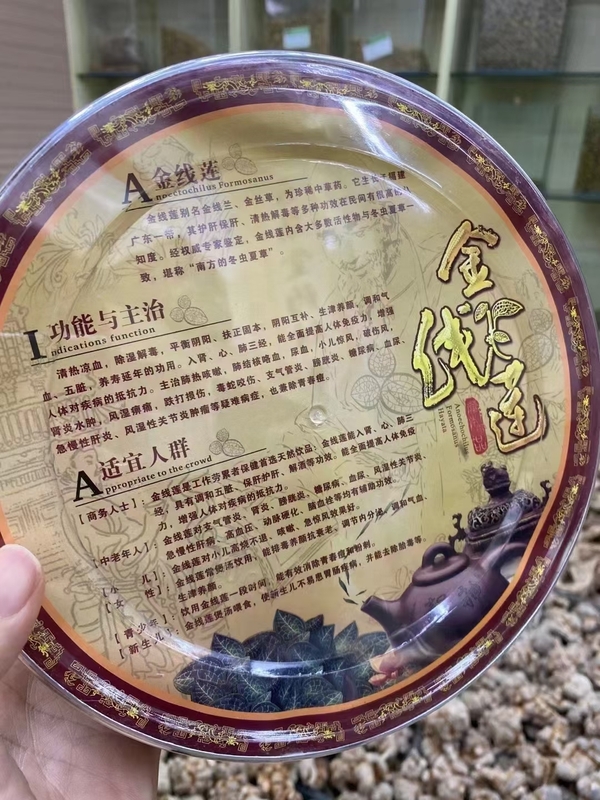 金线莲
Anoectochilus Formosanus
金线莲别名金线兰、金丝草，为珍稀中草药。它生长于福建
广东一带，其护肝保肝、清热解毒等多种功效在民间有很高的认
知度。经权威专家鉴定，金线莲内含大多数活性物与冬虫夏草一
致，堪称“南方的冬虫夏草”。
功能与主治
Indications function
清热凉血，除湿解毒，平衡阴阳、扶正固本，阴阳互补、生津养颜，调和气
血、五脏，养寿延年的功用。入肾、心、肺三经，能全面提高人体免疫力，增强
人体对疾病的抵抗力。主治肺热咳嗽，肺结核咯血，尿血，小儿惊风，破伤风，
肾炎水肿，风湿痹痛，跌打损伤，毒蛇咬伤、支气管炎、膀胱炎、糖尿病、血尿、
急慢性肝炎、风湿性关节炎肿瘤等疑难病症，也兼除青春痘。
适宜人群
Appropriate to the crowd
【商务人士】：金线莲是工作劳累者保健首选天然饮品；金线莲能入肾、心、肺三
经，具有调和五脏、保肝护肝、解酒等功效。能全面提高人体免疫
力，增强人体对疾病的抵抗力。
【中老年人】：金线莲对支气管炎、肾炎、膀胱炎、糖尿病、血尿、风湿性关节炎、
急慢性肝病、高血压、动脉硬化、脑血栓等均有辅助功效
【小 儿】：金线莲对小儿高烧不退、咳嗽、急惊风效果好。
【女 性】：金线莲常煲汤饮用，能排毒养颜抗衰老，调节内分泌，调和气血、
生津养颜。
【青少年】：饮用金线莲一段时间，能有效消除青春痘和粉刺。
【新生儿】：金线莲煲汤喂食，使新生儿不易患胃肠疾病，并能去除胎毒等。
金线莲
Anoectochilus
Formosanus
Hayata